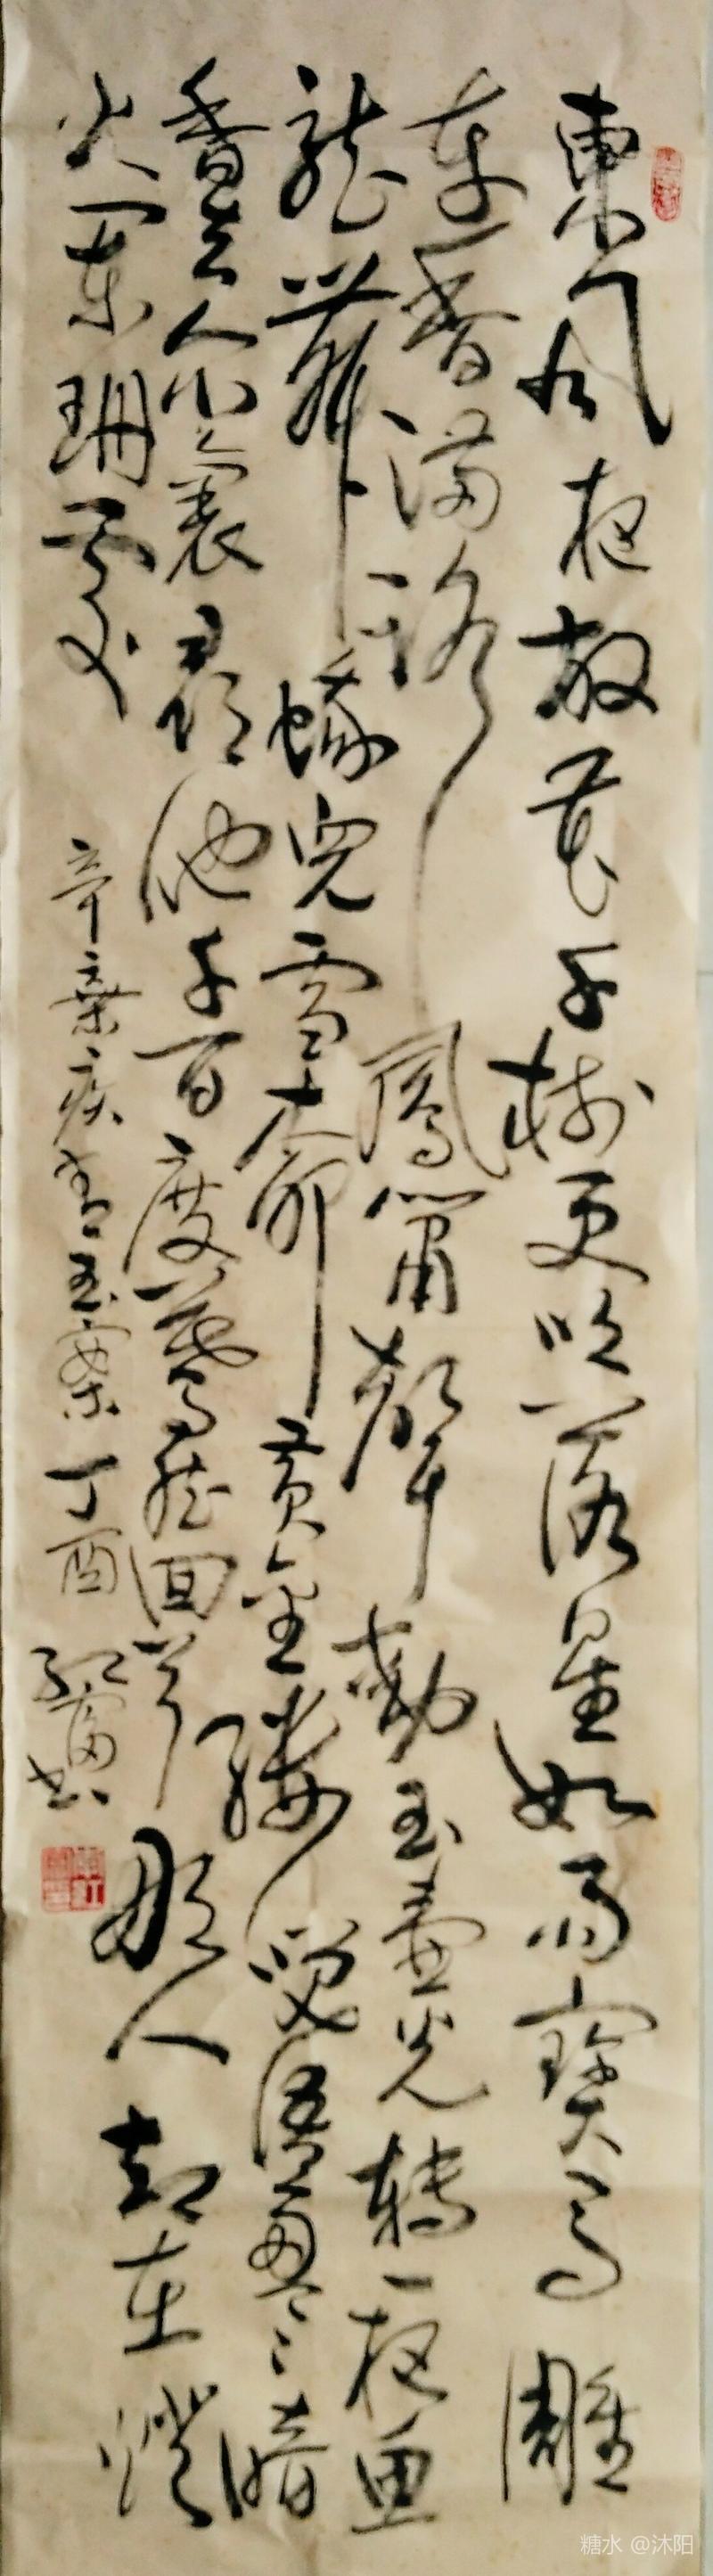 東風夜放花千樹更吹落星如雨寶馬雕
車香滿路鳳簫聲動玉壺光轉一夜魚
龍舞蛾兒雪柳黃金縷笑語盈盈暗
香去衆裏尋他千百度驀然回首那人却在燈
火闌珊處
辛棄疾青玉案丁酉
糖水 @沐阳